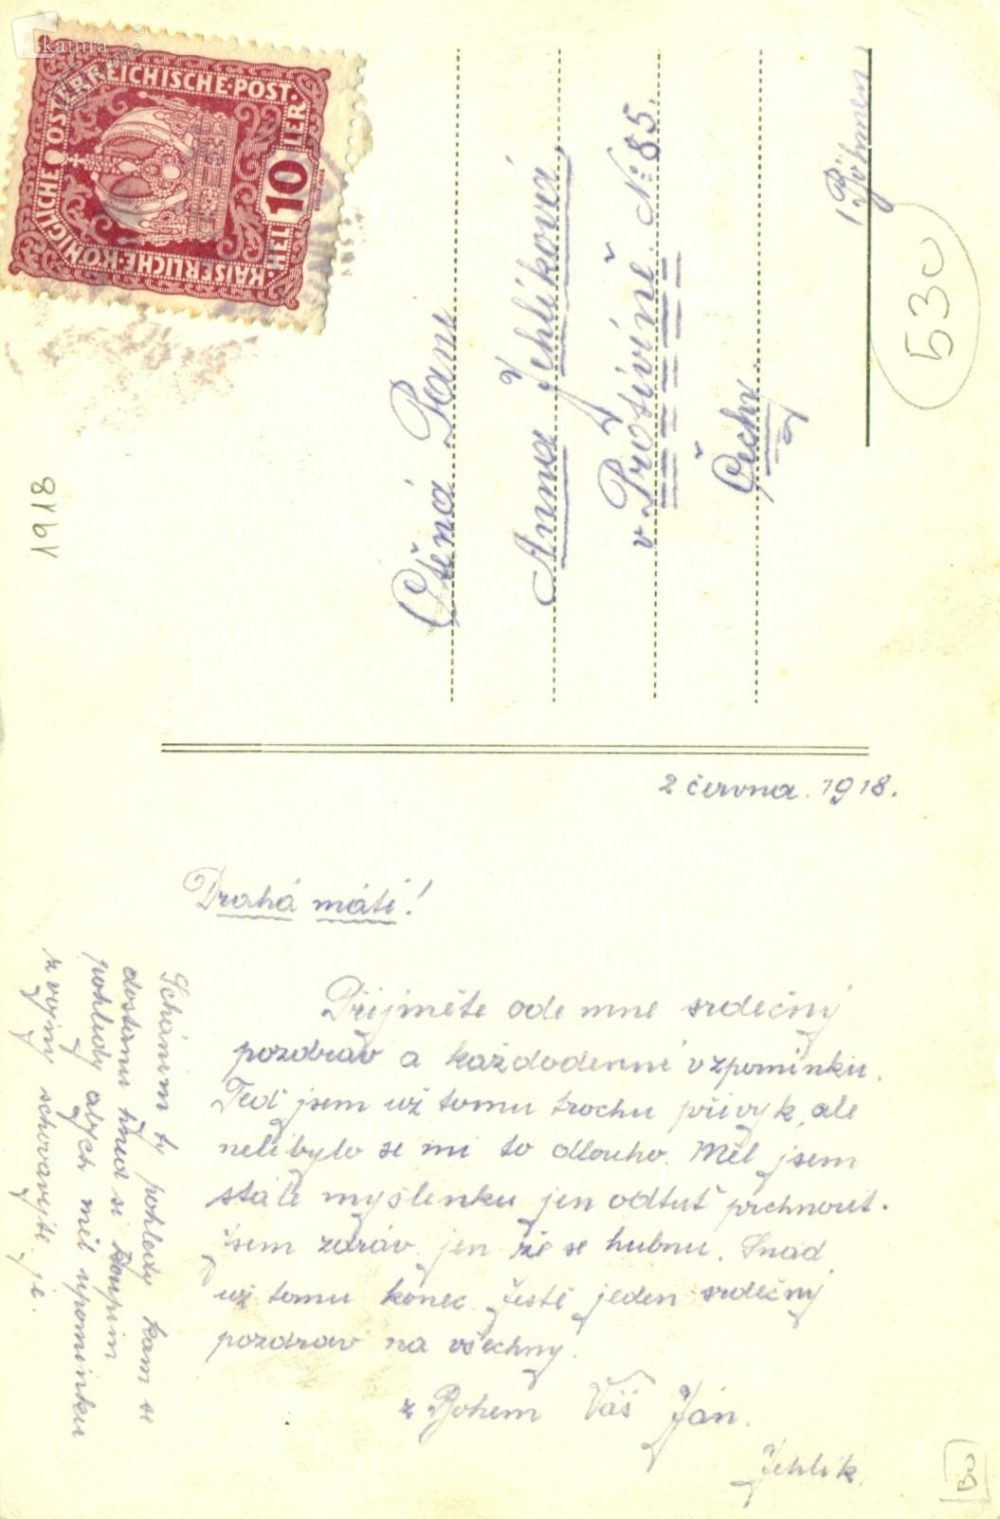 kauna ©
KAISERLICHE·KÖNIGLICHE ÖSTERREICHISCHE·POST.
HEL 10 LER
1918
Ctěná Paní
Anna Jehlíková
v Protivíně N: 85.
Čechy
Böhmen
530
2 června. 1918.
Drahá máti!
Přijměte ode mne srdečný
pozdrav a každodenní vzpomínku.
Teď jsem už tomu trochu přivyk, ale
nelíbylo se mi to dlouho. Měl jsem
stálé myšlenku jen odtuť prchnout.
Jsem zdráv jen že se hubnu. Snad
už tomu konec. Ještě jeden srdečný
pozdrav na všechny.
z Bohem Váš Jan.
Jehlík.
Scháním ty pohledy kam se
dostanu hned si koupím
pohledy abych měl upomínku
z vojny schovavejte je.
BU